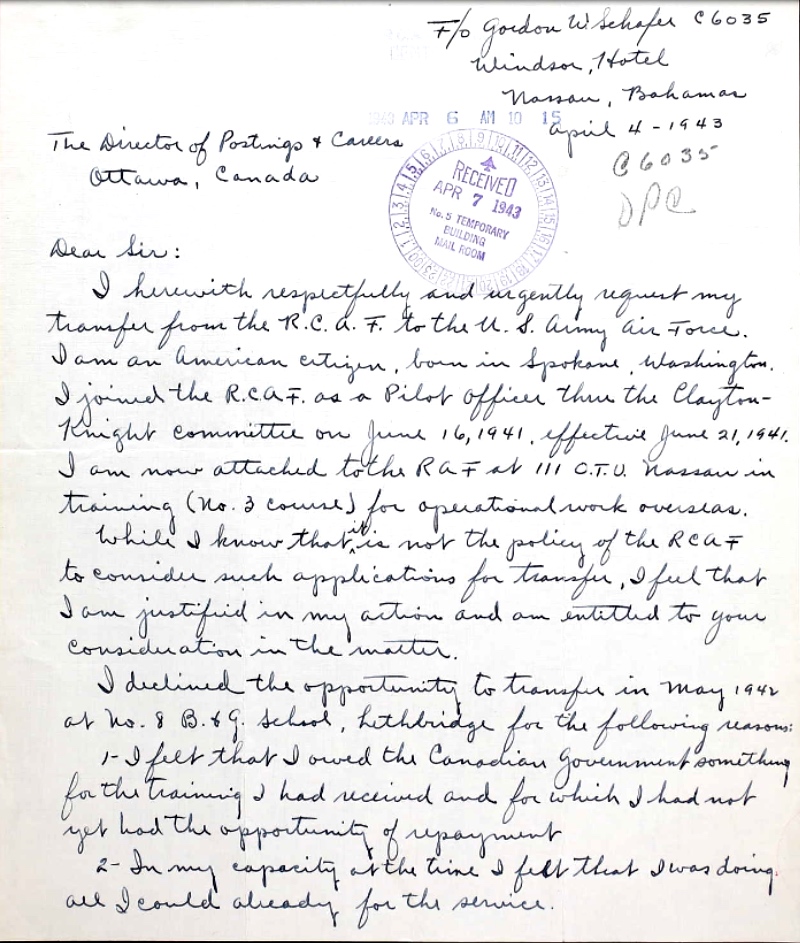 F/O Gordon W. Schafer C6035
Windsor, Hotel
Nassau, Bahamas
1943 APR 6 AM 10 15
April 4 - 1943
The Director of Postings + Careers
Ottawa, Canada
C6035
DPC
RECEIVED
APR 7 1943
No. 5 TEMPORARY
BUILDING
MAIL ROOM
Dear Sir:
I herewith respectfully and urgently request my
transfer from the R.C.A.F. to the U.S. Army Air Force.
I am an American citizen, born in Spokane, Washington.
I joined the R.C.A.F. as a Pilot Officer thru the Clayton-
Knight committee on June 16, 1941, effective June 21, 1941.
I am now attached to the RAF at 111 O.T.U. Nassau in
training (No. 3 course) for operational work overseas.
While I know that it is not the policy of the RCAF
to consider such applications for transfer, I feel that
I am justified in my action and am entitled to your
consideration in the matter.
I declined the opportunity to transfer in May 1942
at No. 8 B. & G. School, Lethbridge for the following reasons:
1- I felt that I owed the Canadian Government something
for the training I had received and for which I had not
yet had the opportunity of repayment
2- In my capacity at the time I felt that I was doing
all I could already for the service.